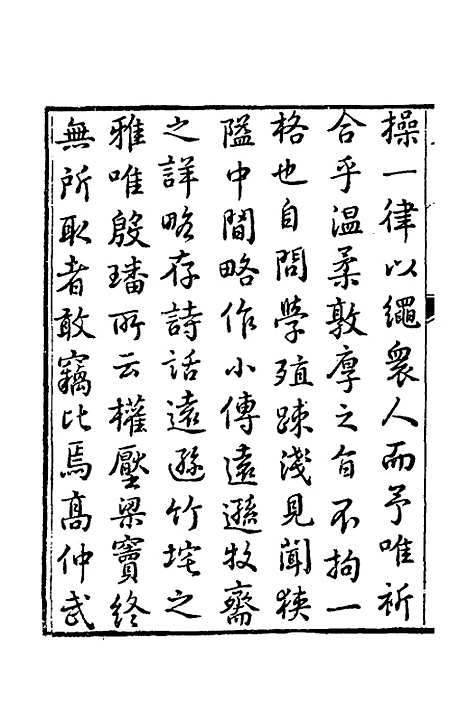 操一律以繩衆人而予唯祈
合乎温柔敦厚之旨不拘一
格也自問學殖踈淺見聞狹
隘中間略作小傳遠遜牧齋
之詳略存詩話遠遜竹垞之
雅唯殷璠所云權壓梁竇終
無所取者敢竊比焉高仲武